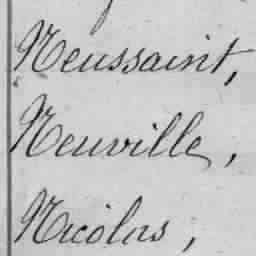 Neussaint,
Neuville,
Nicolas,